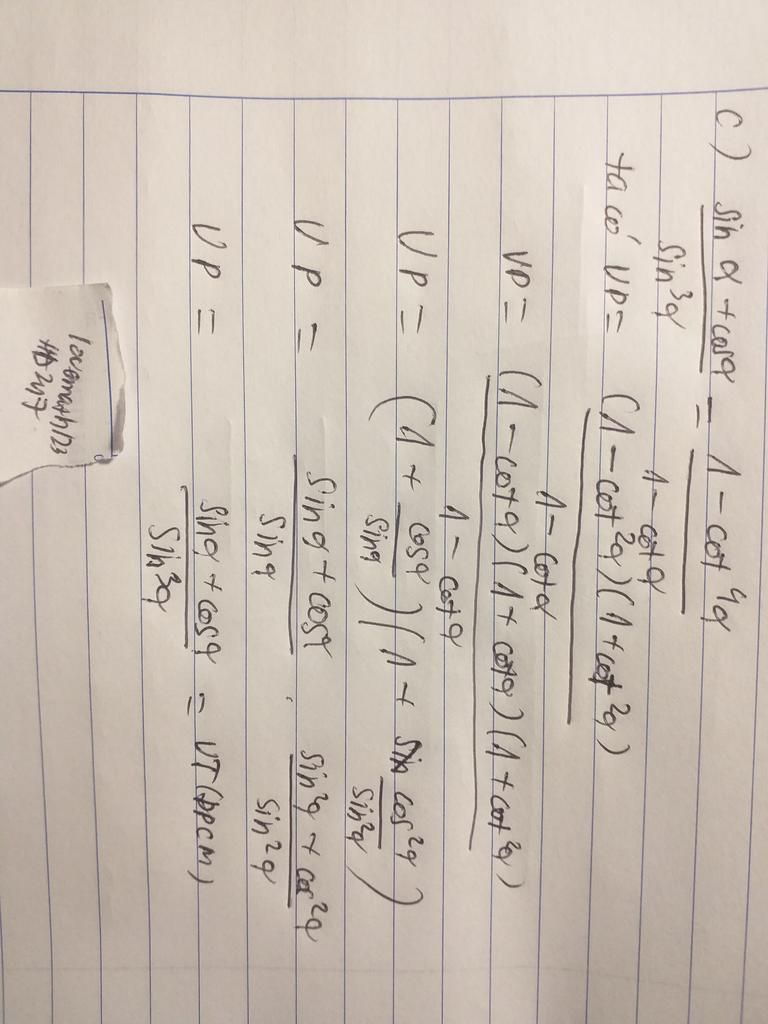 c) (sin α + cosα)/(sin³α) = (1 - cot⁴α)/(1 - cotα)
ta có VP = ((1 - cot²α)(1 + cot²α))/(1 - cotα)
VP = ((1 - cotα)(1 + cotα)(1 + cot²α))/(1 - cotα)
VP = (1 + cosα/sinα)(1 + cos²α/sin²α)
VP = (sinα + cosα)/sinα . (sin²α + cos²α)/sin²α
VP = (sinα + cosα)/(sin³α) = VT (đpcm)